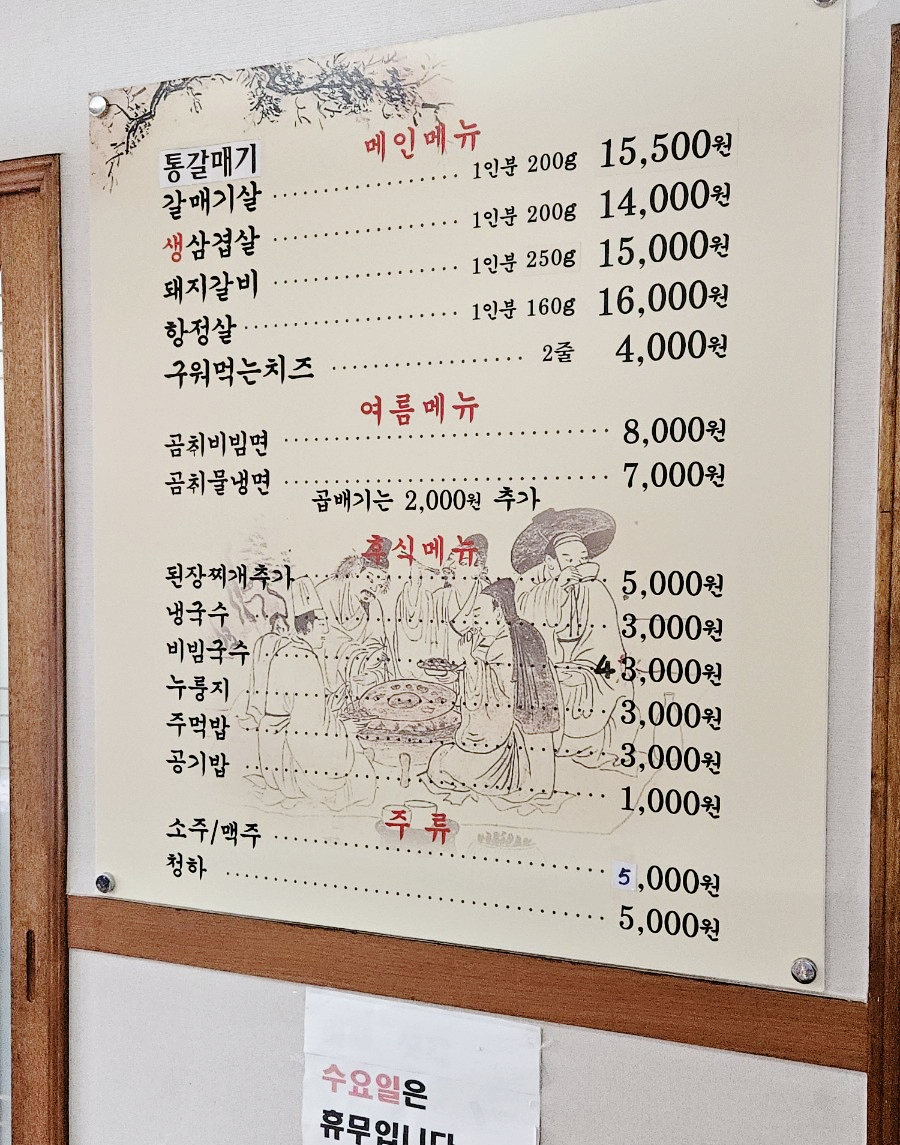 메인메뉴
통갈매기
갈매기살 1인분 200g 15,500원
생삼겹살 1인분 200g 14,000원
돼지갈비 1인분 250g 15,000원
항정살 1인분 160g 16,000원
구워먹는치즈 2줄 4,000원
여름메뉴
곰취비빔면 8,000원
곰취물냉면 7,000원
곱배기는 2,000원 추가
후식메뉴
된장찌개추가 5,000원
냉국수 3,000원
비빔국수 4 3,000원
누룽지 3,000원
주먹밥 3,000원
공기밥 1,000원
주류
소주/맥주 5,000원
청하 5,000원
수요일은
휴무입니다